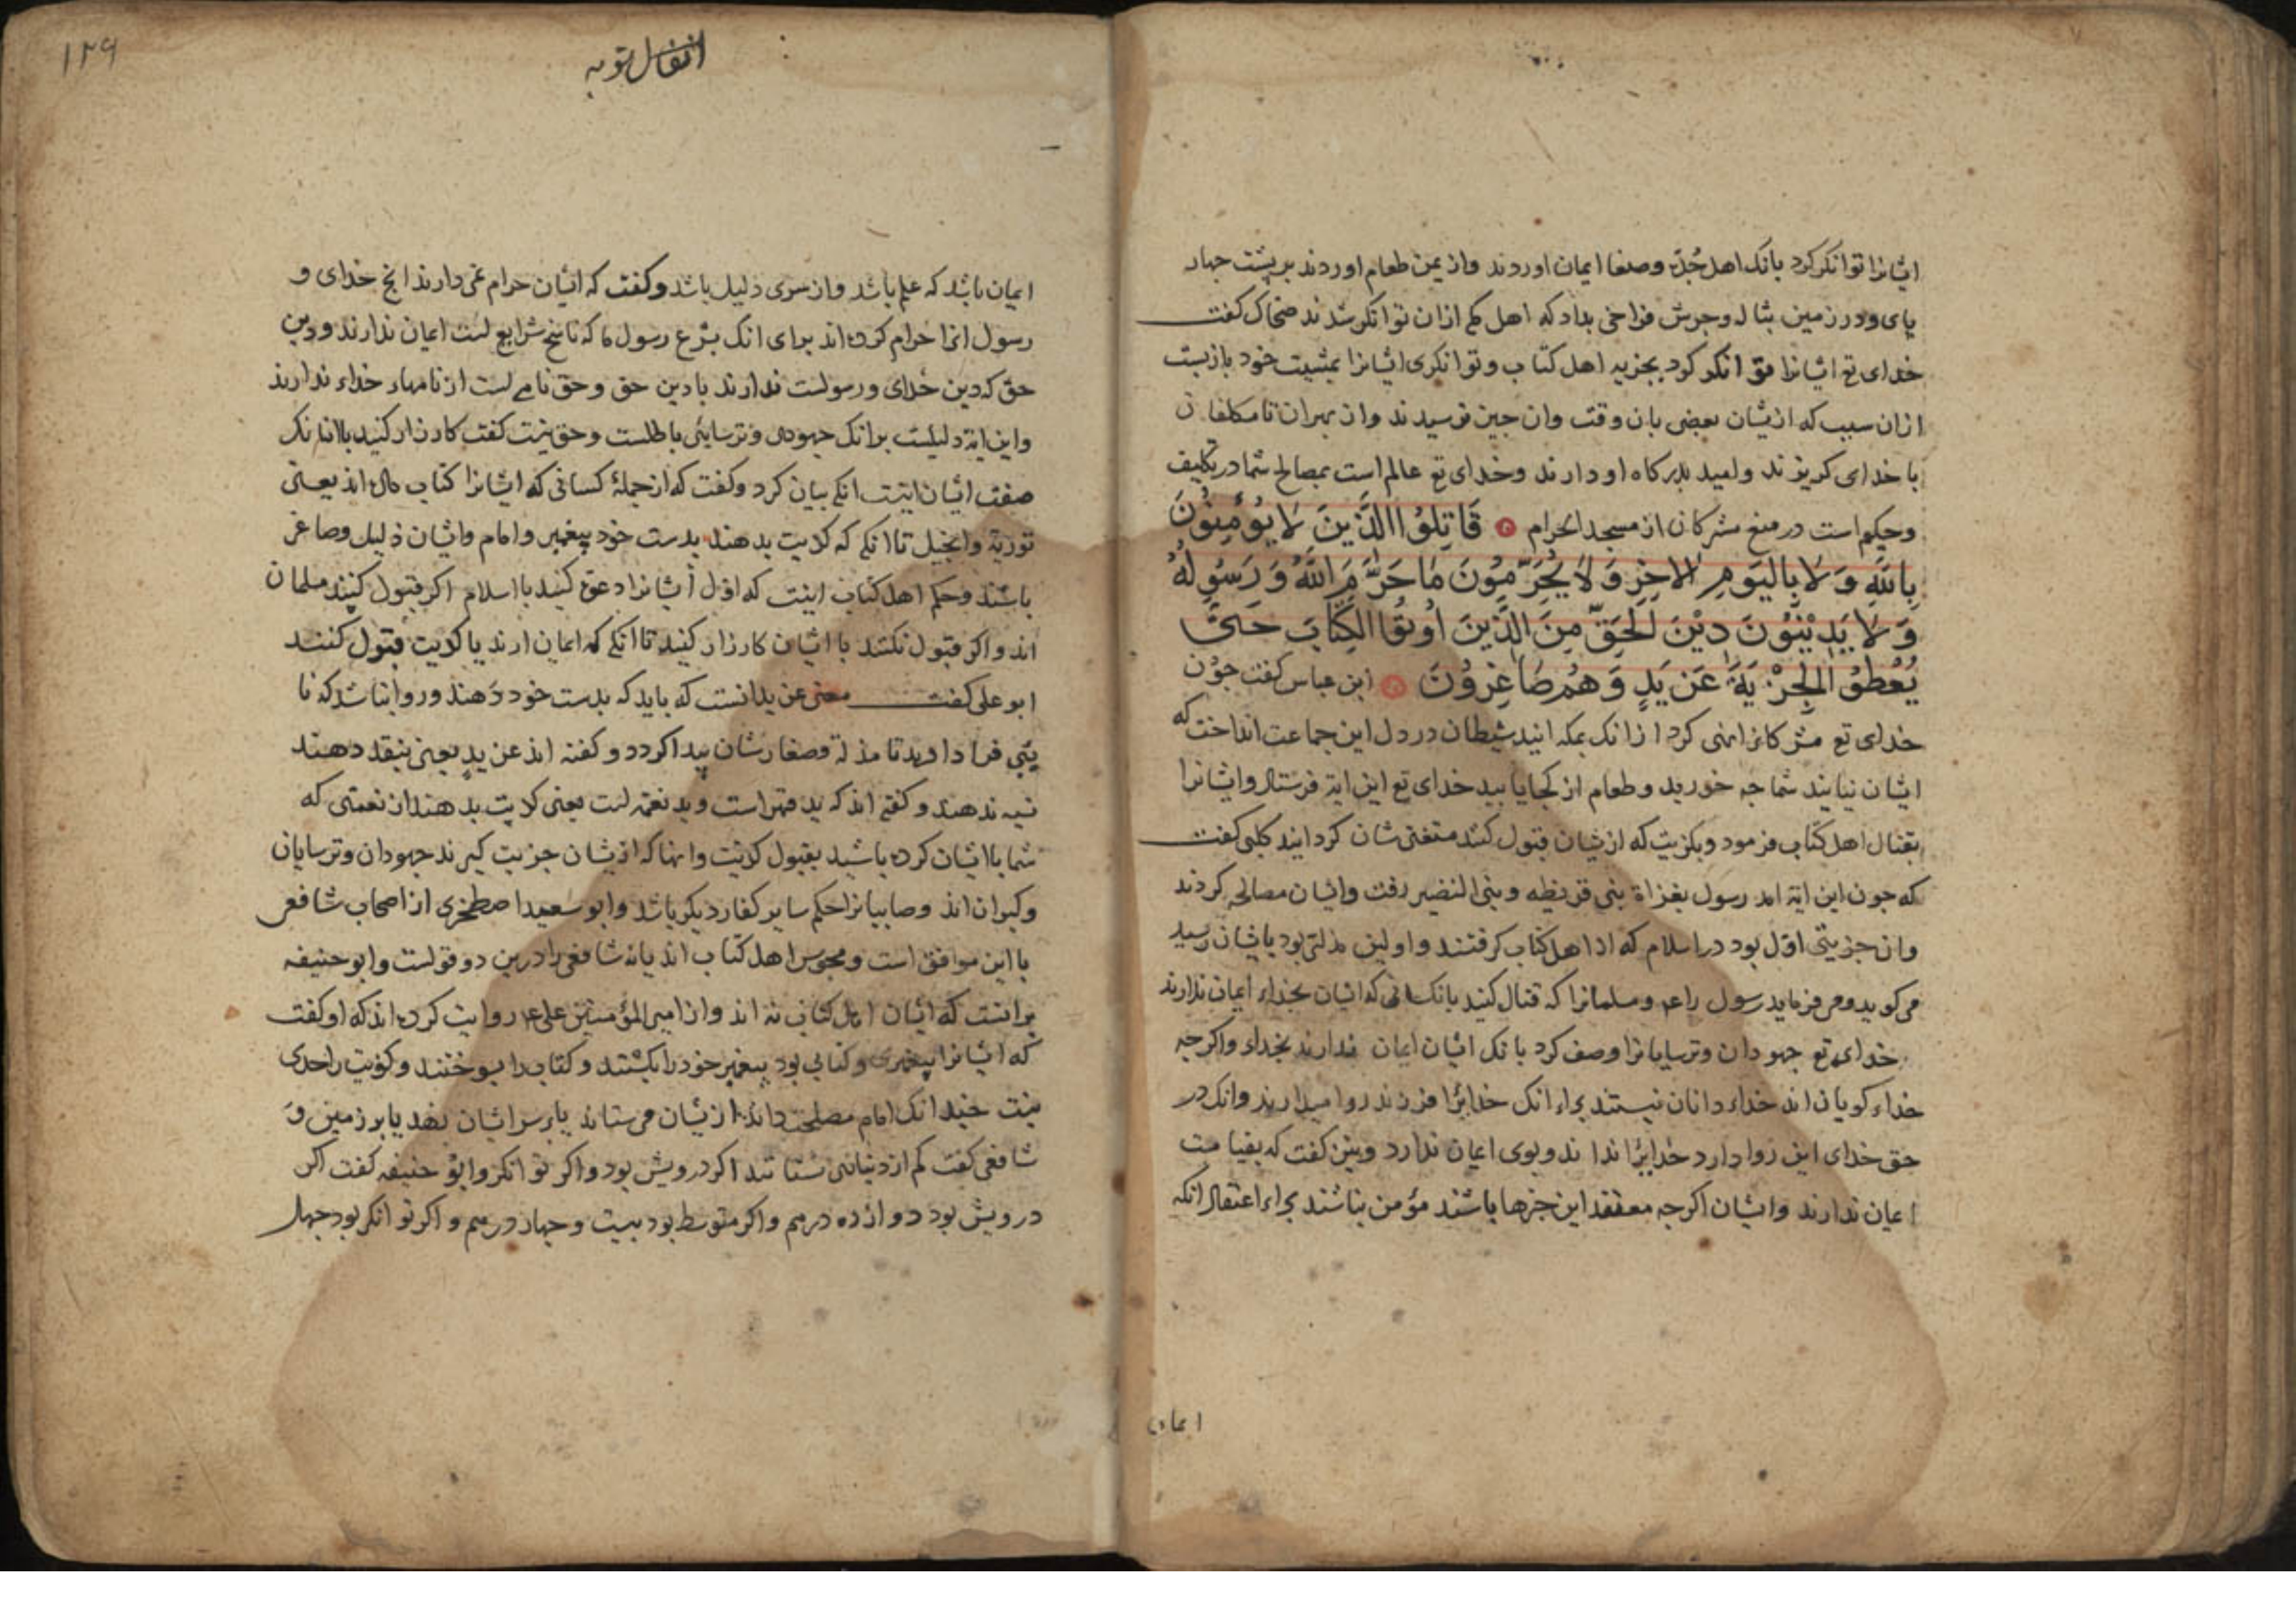 ایشانرا توانکر کرد بانک اهل جده و صنعا ایمان اوردند واز یمن طعام اوردند بر پشت جهار
پای ودر زمین بتاله وجرش فراخی بداد که اهل مکه ازان توانکر شدند ضحاک کفت
خدای تع ایشانرا توانکر کرد بجزیه اهل کتاب وتوانکری ایشانرا بمشیت خود بازبست
ازان سبب که ازیشان بعضی بان وقت وان جیز نرسیدند واز بهر ان تا مکلفان
با خدای کریزند وامید بدرکاه او دارند وخدای تع عالم است بمصالح شما در تکلیف
وحکیم است در منع مشرکان از مسجد الحرام قَاتِلُوا الَّذِینَ لَا یُؤْمِنُونَ
بِاللَّهِ وَلَا بِالْیَوْمِ الْاخِرِ وَلَا یُحَرِّمُونَ مَا حَرَّمَ اللَّهُ وَرَسُولُهُ
وَلَا یَدِیْنُونَ دِیْنَ الْحَقِّ مِنَ الَّذِینَ اُوتُوا الْکِتَابَ حَتَّی
یُعْطُوا الْجِزْیَةَ عَنْ یَدٍ وَهُمْ صَاغِرُونَ ابن عباس کفت جون
خدای تع مشرکانرا نهی کرد ازانک بمکه ایند شیطان در دل این جماعت انداخت که
ایشان نیایند شما جه خورید وطعام از کجا یابید خدای تع این ایة فرستاد وایشانرا
بقتال اهل کتاب فرمود وبکزیت که ازیشان قبول کنند مستغنی شان کردانید کلبی کفت
که جون این ایة امد رسول بغزاة بنی قریظه وبنی النضیر رفت وایشان مصالحه کردند
وان جزیتی اول بود در اسلام که از اهل کتاب کرفتند واولین مذلتی بود بایشان رسید
می کوید ومی فرماید رسول را عم ومسلمانرا که قتال کنید بانکسانی که ایشان بخداء ایمان ندارند
خدای تع جهودان وترسایانرا وصف کرد بانک ایشان ایمان ندارند بخداء واکرجه
خداء کویان اند خداء دانان نیستند براء انک خدایرا فرزند روا میدارند وانک در
حق خدای این روا دارد خدایرا نداند وبوی ایمان ندارد ونیز کفت که بقیامت
ایمان ندارند وایشان اکرجه معتقد این جیزها باشند مؤمن نباشند براء اعتقاد انکه
ایمان
انفال توبه
۱۲۹
ایمان باشد که علم باشد واز سری دلیل باشد وکفت که ایشان حرام نمی دارند انج خدای و
رسول انرا حرام کرده اند برای انک بشرع رسول ما که ناسخ شرایع است ایمان ندارند ودین
حق که دین خدای ورسولست ندارند یا دین حق وحق نامی است از نامهاء خداء ندارند
واین ایة دلیلست برانک جهودی وترسایی باطلست وحق نیست کفت کارزار کنید باانانک
صفت ایشان اینست انکه بیان کرد وکفت که از جملهٔ کسانی که ایشانرا کتاب داده اند یعنی
توریة وانجیل تا انکه که کزیت بدهند بدست خود پیغمبر وامام وایشان ذلیل وصاغر
باشند وحکم اهل کتاب اینست که اول ایشانرا دعوة کنید بااسلام اکر قبول کنند مسلمان
اند واکر قبول نکنند با ایشان کارزار کنید تا انکه که ایمان ارند یا کزیت قبول کنند
ابو علی کفت معنی عن ید انست که باید که بدست خود دهند وروا نباشد که نا
یبی فرا دارند تا مذلة وصغارشان پیدا کردد وکفته اند عن یدٍ یعنی بنقد دهند
نسیه ندهند وکفته اند که ید قهر است وید نعمة است یعنی کزیت بدهند ان نعمتی که
شما باایشان کرده باشید بقبول کزیت وانها که ازیشان جزیت کیرند جهودان وترسایان
وکبران اند وصابیانرا حکم سایر کفار دیکر باشد وابو سعید اصطخری از اصحاب شافعی
با این موافق است ومجوس اهل کتاب اند یا نه شافعی را درین دو قولست وابو حنیفه
برانست که ایشان اهل کتاب نه اند واز امیر المؤمنین علی عم روایت کرده اند که او کفت
که ایشانرا پیغمبری وکتابی بود پیغمبر خود را بکشتند وکتاب را بسوختند وکزیت را حدی
نیست جندانک امام مصلحت داند ازیشان می ستاند یا بر سر ایشان نهد یا بر زمین و
شافعی کفت کم از دیناری نستانند اکر درویش بود واکر توانکر وابو حنیفه کفت اکر
درویش بود دوازده درهم واکر متوسط بود بیست وجهار درهم واکر توانکر بود جهل